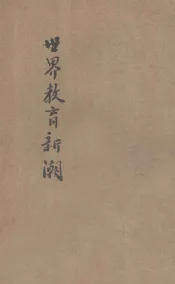 世界教育新潮